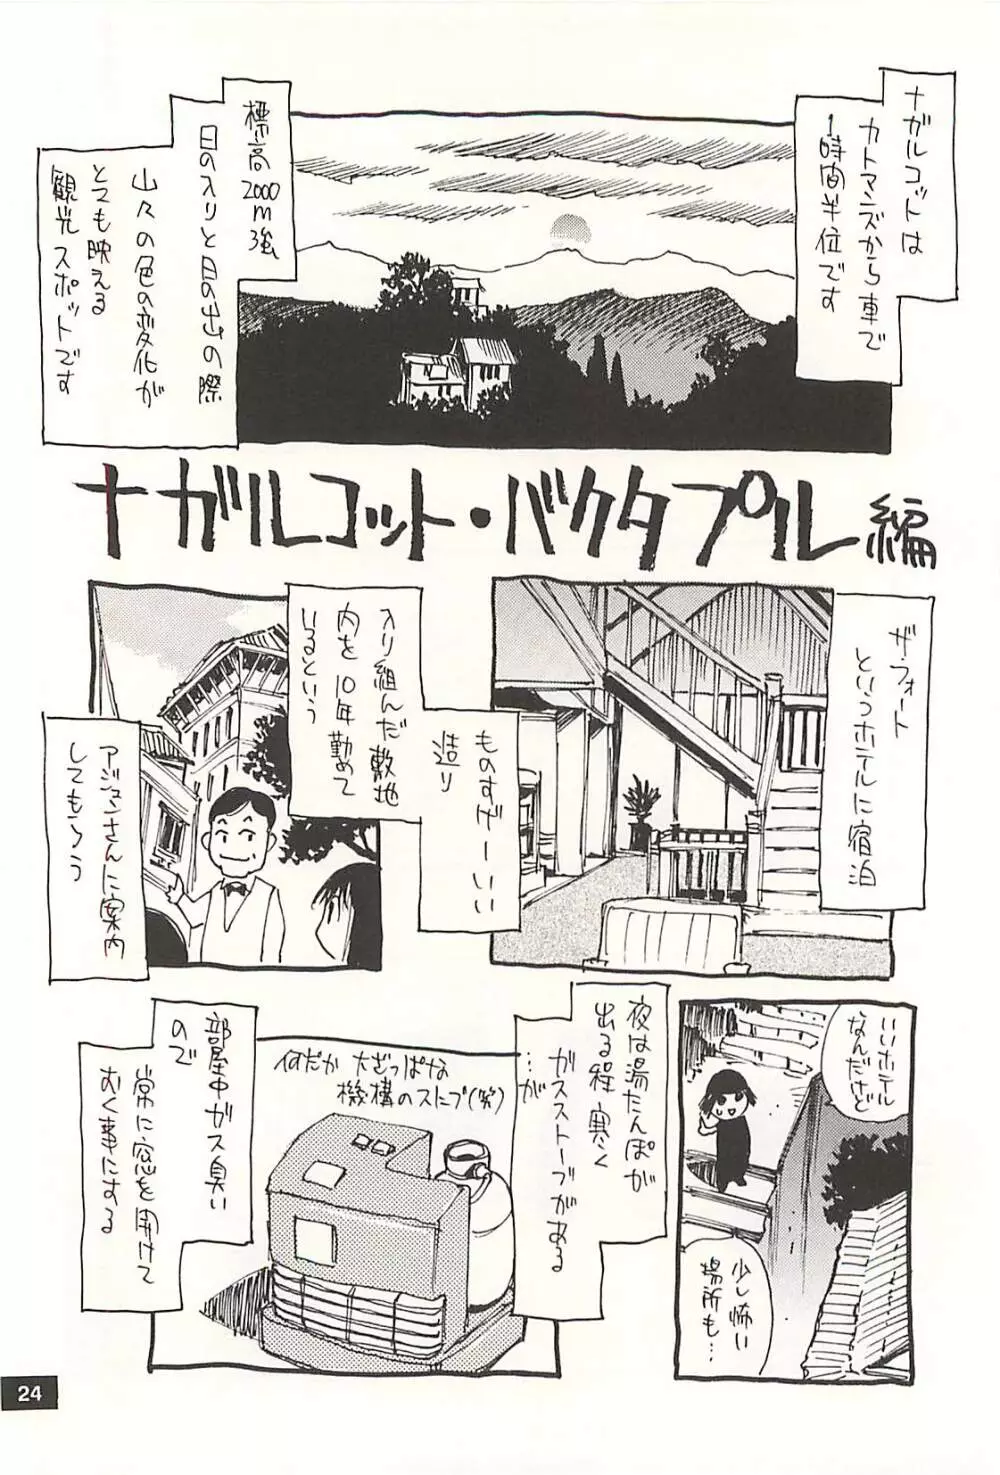 ナガルコットは
カトマンズから車で
1時間半位です
標高2000m強
日の入りと日の出の際
山々の色の変化が
とても映える
観光スポットです
ナガルコット・バクタプル編
ザ・フォート
というホテルに宿泊
ものすげーいい
造り
入り組んだ敷地
内を10年勤めて
いるという
アジュンさんに案内
してもらう
いいホテル
なんだけど
少し怖い
場所も…
夜は湯たんぽが
出る程寒く
ガスストーブがある
…が
何だか大ざっぱな
機構のストーブ(笑)
部屋中ガス臭い
ので
常に窓を開けて
おく事にする
24